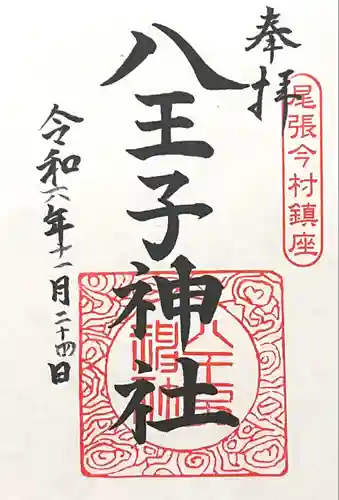 奉拝
尾張今村鎮座
八王子神社
令和六年十一月二十四日